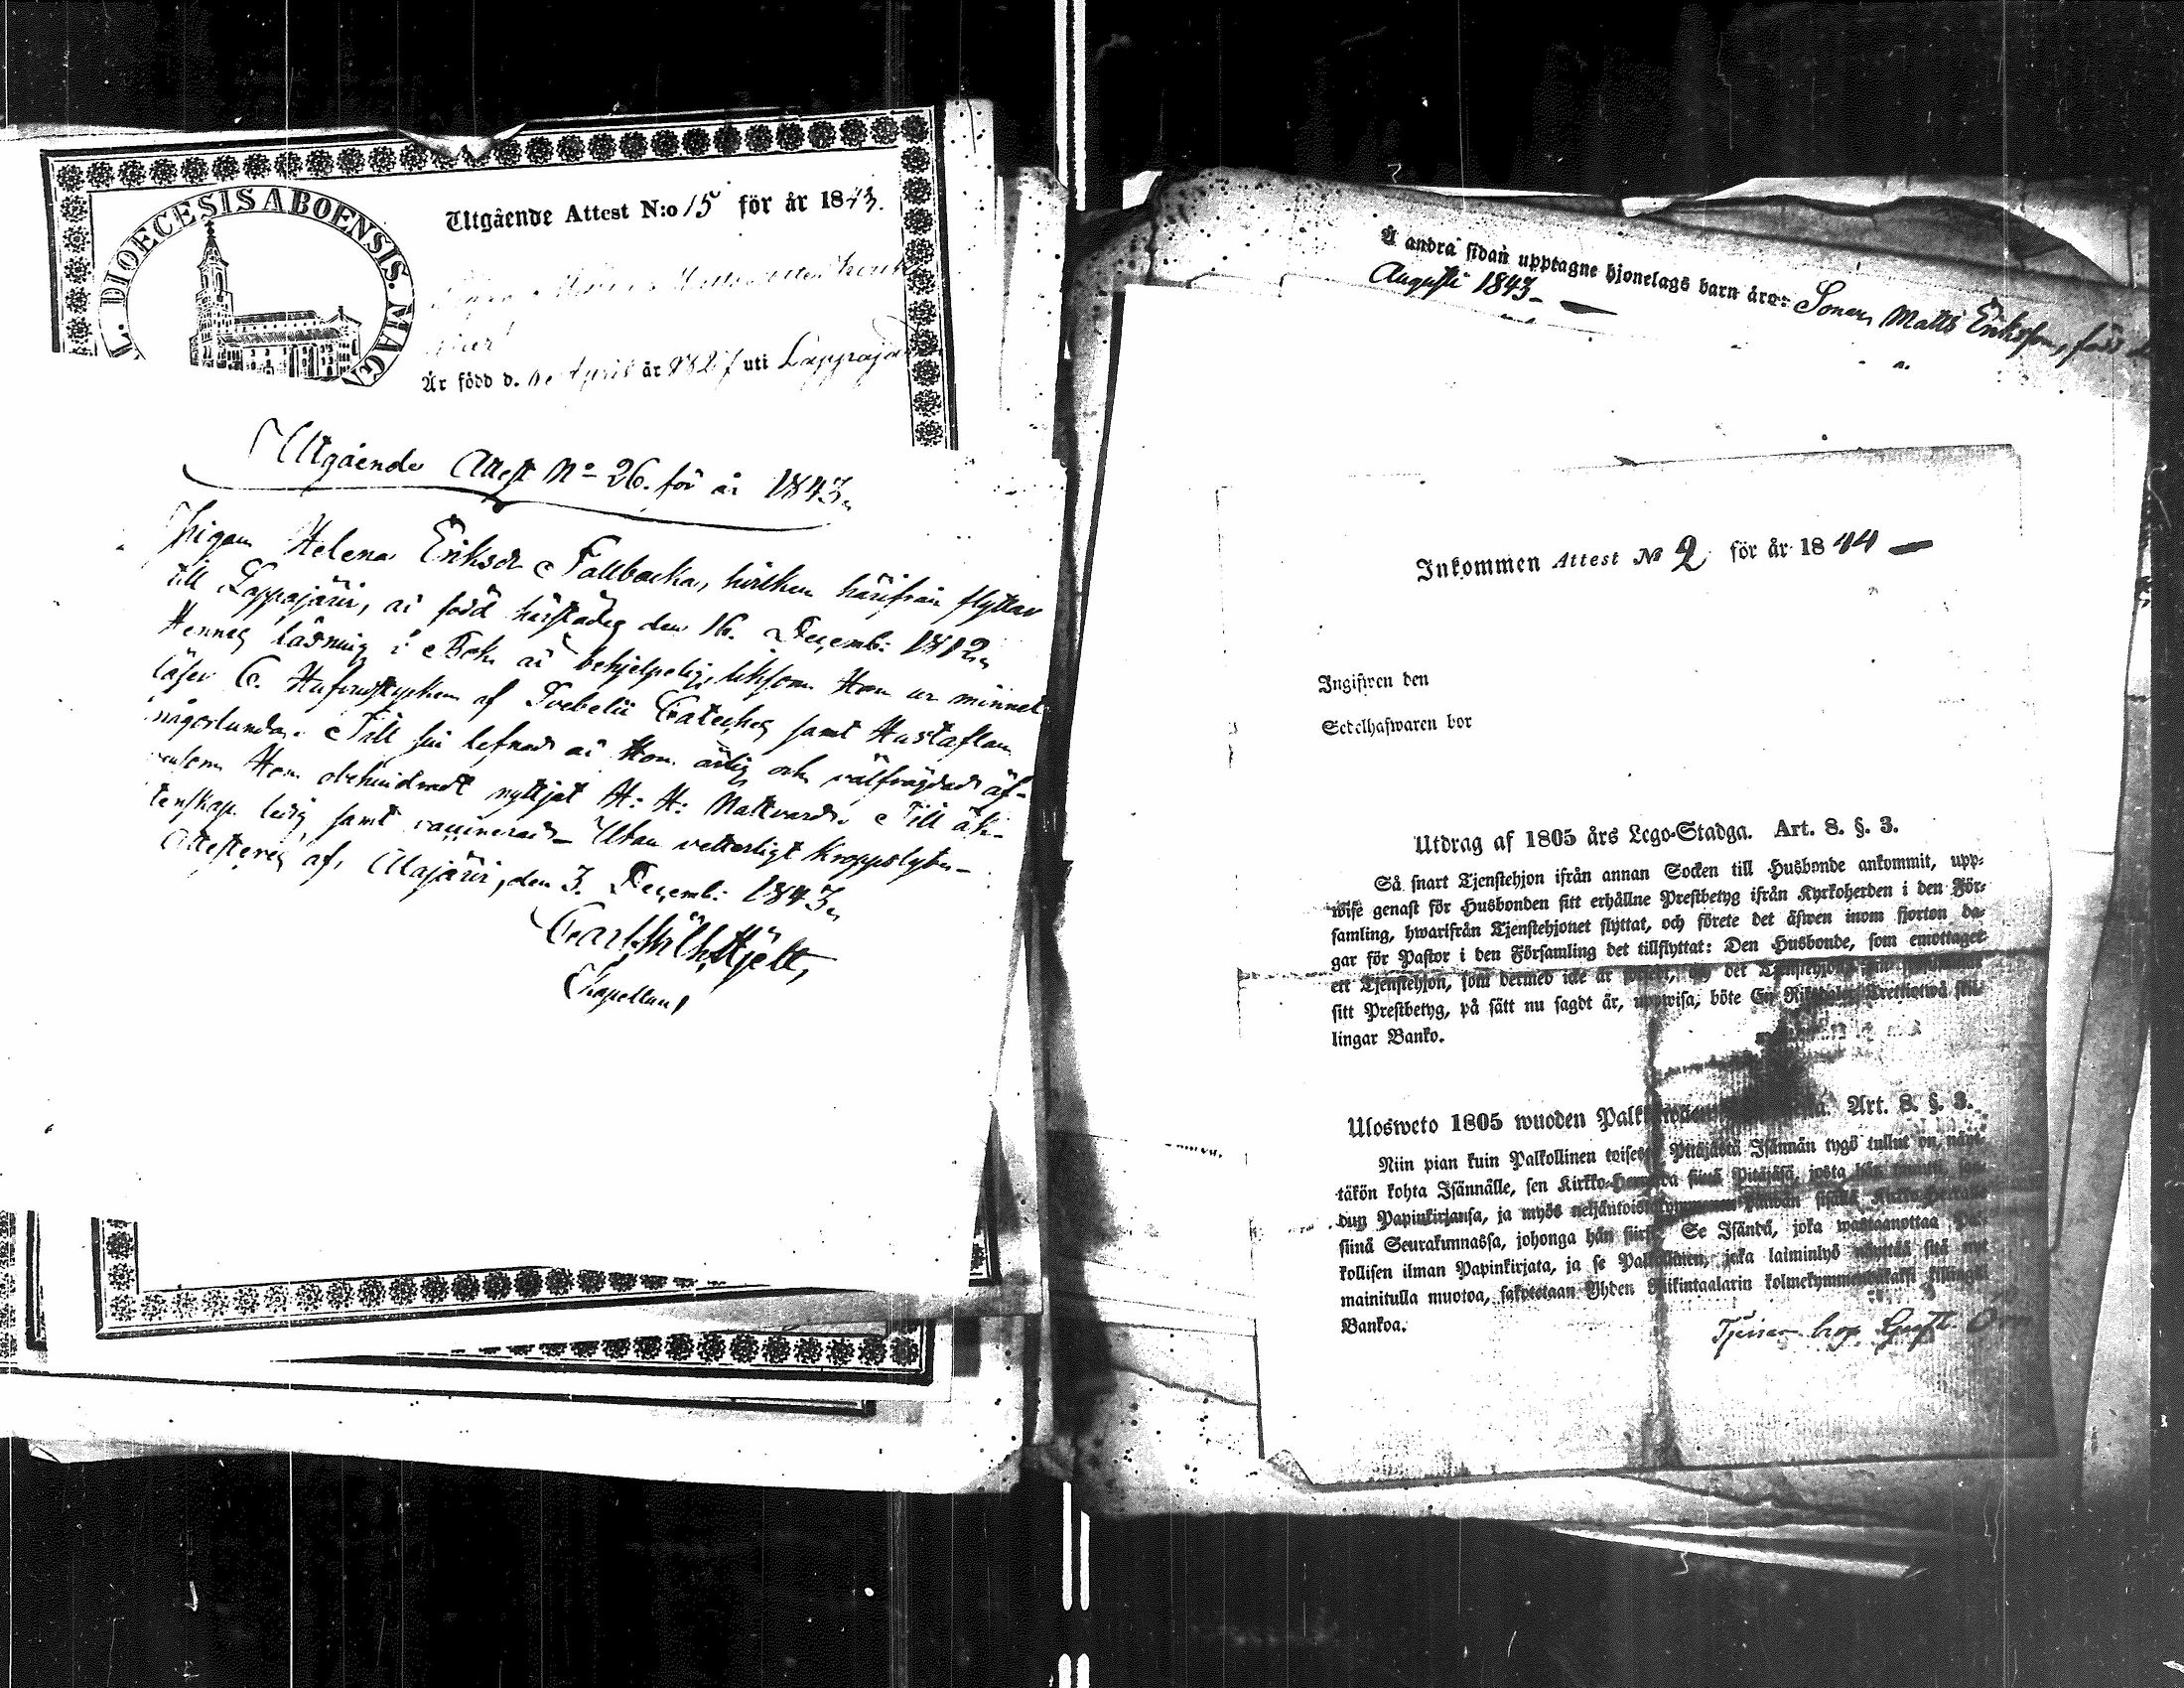 L. DIOECESIS ABOENSIS. MAG
Utgående Attest N:o 15 för år 1843.
Är född d. April år uti Lappajär
Utgående Attest No 26. för år 1843.
Pigan Helena Eriksdr Fallbacka, hvilken härifrån flyttar
till Lappajärvi, är född härstädes den 16. Decemb: 1812.
Hennes läsning i Bok är behjelpelig, liksom Hon ur minnet
läser C. Hufvudstycken af Svebelii Cateches samt Hustaflan
någorlunda. Till sin lefnad är Hon ärlig och välfrägdad äf-
vensom Hon obehindradt nyttjat H: H: Nattvard. Till äk-
tenskap ledig samt vaccinerad. Utan vetterligt Kroppslyte.
Attesteras af, Alajärvi, den 3. Decemb: 1843.
Carl Wilh Hjelt,
Chapellan
Å andra sidan upptagne hjonelags barn äro: Sonen Matts Eriksson, född
Augusti 1843
Inkommen Attest No 2 för år 1844
Ingifwen den
Sedelhafwaren bor
Utdrag af 1805 års Lego-Stadga. Art. 8. §. 3.
Så snart Tjenstehjon ifrån annan Socken till Husbonde ankommit, upp-
wise genast för Husbonden sitt erhållne Prestbetyg ifrån Kyrkoherden i den För-
samling, hwarifrån Tjenstehjonet flyttat, och förete det äfwen inom fjorton da-
gar för Pastor i den Församling det tillflyttat: Den Husbonde, som emottager
ett Tjenstehjon, som dermed icke är det
sitt Prestbetyg, på sätt nu sagdt är, uppwisa, böte En Riksdaler Trettiotwå skil-
lingar Banko.
Ulosweto 1805 wuoden Art. 8. §. 3.
Niin pian kuin Palkollinen toisesta Pitäjästä Isännän tygö tullut on, näyt-
täkön kohta Isännälle, sen Kirkko-Herralda siinä Pitäjäsä, josta hän
dun Papinkirjansa, ja myös sisällä Kirkko-Herralle
siinä Seurakunnassa, johonga hän Se Isändä, joka wastaanottaa Pal-
kollisen ilman Papinkirjata, ja se Palkollinen, joka laiminlyö näyttää sitä nyt
mainitulla muotoa, sakotetaan Yhden Riikintaalarin kolmekymmentäkaksi killingiä
Bankoa.